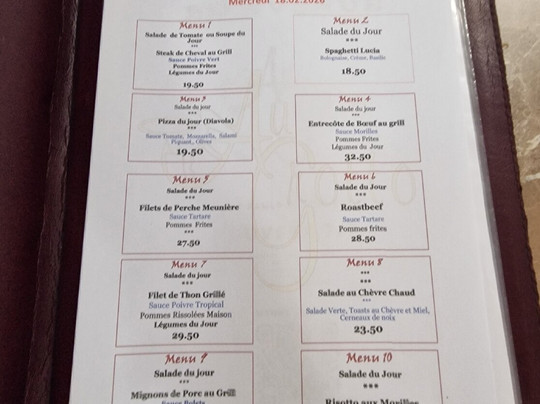 Mercredi 18.02.2026
Menu 1
Salade de Tomate ou Soupe du
Jour
***
Steak de Cheval au Grill
Sauce Poivre Vert
Pommes Frites
Légumes du Jour
19.50
Menu 2
Salade du Jour
***
Spaghetti Lucia
Bolognaise, Crème, Basilic
18.50
Menu 3
Salade du jour
***
Pizza du jour (Diavola)
***
Sauce Tomate, Mozzarella, Salami
Piquant, Olives
19.50
Menu 4
Salade du jour
***
Entrecôte de Bœuf au grill
Sauce Morilles
Pommes Frites
Légumes du Jour
32.50
Menu 5
Salade du Jour
***
Filets de Perche Meunière
Sauce Tartare
Pommes Frites
***
27.50
Menu 6
Salade du Jour
***
Roastbeef
Sauce Tartare
Pommes frites
28.50
Menu 7
Salade du jour
***
Filet de Thon Grillé
Sauce Poivre Tropical
Pommes Rissolées Maison
Légumes du Jour
29.50
Menu 8
***
***
Salade au Chèvre Chaud
***
Salade Verte, Toasts au Chèvre et Miel,
Cerneaux de noix
23.50
Menu 9
Salade du jour
***
Mignons de Porc au Grill
Sauce Bolets
Menu 10
Salade du Jour
***
Risotto aux Morilles